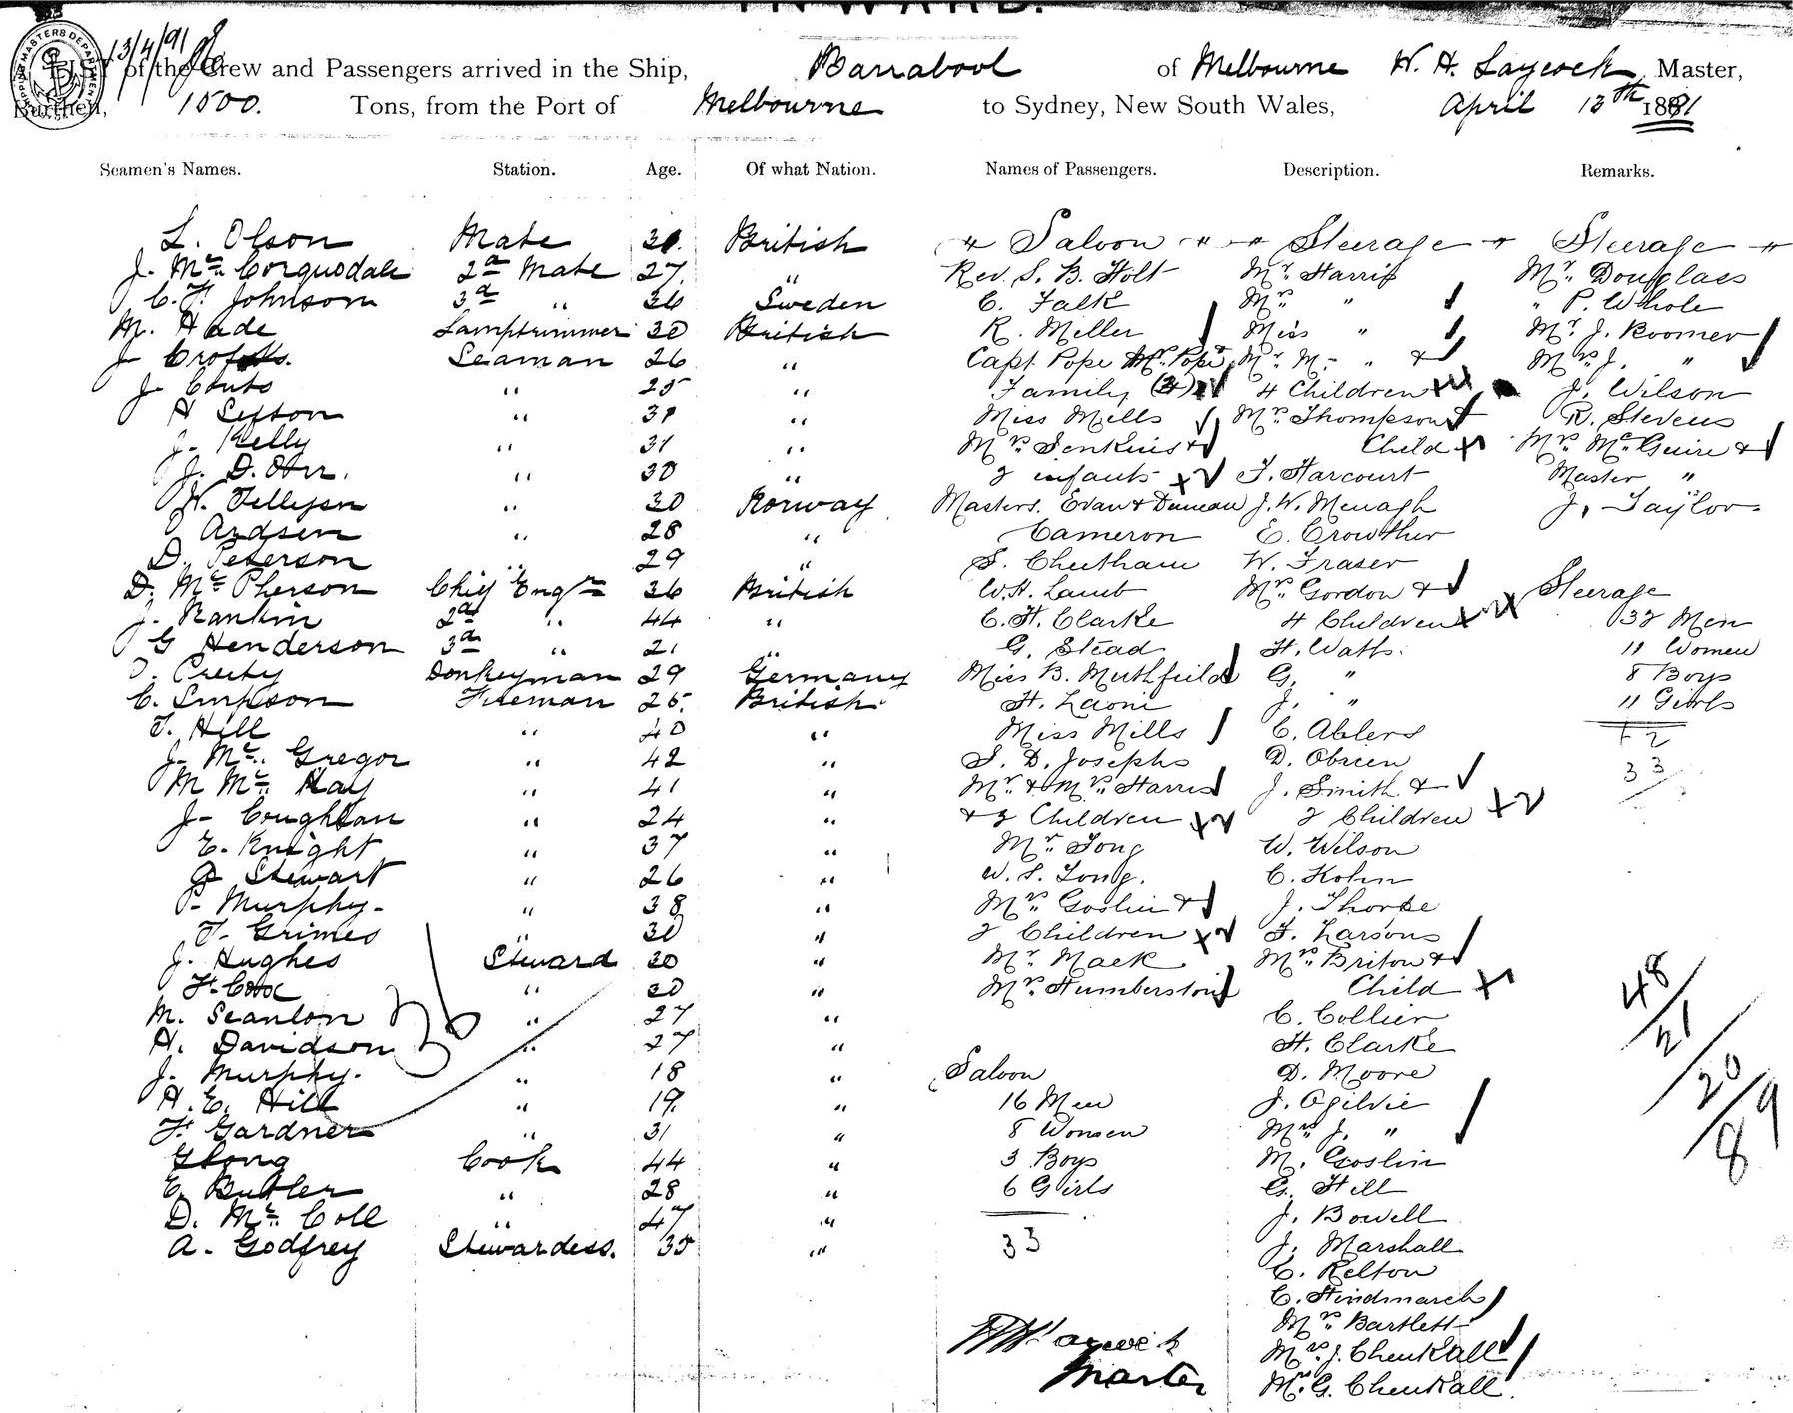 INWARD.
SHIPPING MASTERS DEPARTMENT
13/4/91
LIST of the Crew and Passengers arrived in the Ship, Barrabool of Melbourne W. H. Laycock Master,
Burthen, 1500. Tons, from the Port of Melbourne to Sydney, New South Wales, April 13th 1891
Seamen's Names. Station. Age. Of what Nation. Names of Passengers. Description. Remarks.
L. Olson Mate 31. British " Saloon " " Steerage " Steerage "
J. Mc. Corquodale 2d Mate 27. " Rev. S. B. Holt Mr. Harris Mr. Douglass
C. F. Johnson 3d " 26 Sweden C. Falk Mrs " " P. Whole
M. Hade Lamptrimmer 30 British R. Meller Miss " Mr. J. Boomer
J Crofts. Seaman 26 " Capt. Pope Mrs. Pope & Mr. M. " & Mrs J. "
J Couts " 25 " Family (3) 4 Children J. Wilson
H Sefton " 31 " Miss Mills Mrs Thompson & R. Stevens
J. Kelly " 31 " Mrs Jenkins & Child Mrs. McGuire &
J. D. Orr. " 30 " 2 infants F. Harcourt Master "
N. Tellefsn " 30 Norway Masters. Evan & Duncan J. W. Menagh J. Taylor
Ardsen " 28 " Cameron E. Crowther
D. Peterson " 29 " S. Cheetham W. Fraser
D. Mc. Pherson Chief Engr 36 British W. H. Lamb Mrs. Gordon & Steerage
J. Rankin 2d " 44 " C. H. Clarke 4 Children 32 Men
G Henderson 3d " 21 " G. Stead H. Watts. 11 Women
Donkeyman 29 Germany Miss B. Muthfield G. " 8 Boys
C. Simpson Fireman 25. British H. Laoni J. " 11 Girls
T. Hill " 40 " Miss Mills C. Ahlers
J. Mc. Gregor " 42 " S. D. Josephs D. Obrien
M Mc. Kay " 41 " Mr & Mrs. Harris J. Smith & 33
J- Coughlan " 24 " & 2 Children 2 Children
E. Knight " 37 " Mr Tong W. Wilson
G Stewart " 26 " W. S. Tong. C. Kohn
P. Murphy- " 38 " Mrs Goslin & J. Thorpe
T. Grimes " 30 " 2 Children F. Larsons
J. Hughes Steward 30 " Mr. Mack Mrs. Briton &
F. Cox " 20 " Mrs. Humberston Child
M. Scanlon " 27 " C. Collier
36
H. Davidson " 27 " H. Clarke
J. Murphy. " 18 " Saloon D. Moore
H. E. Hill " 19. " 16 Men J. Ogilvie
F. Gardner " 31 " 8 Women Mrs J. "
G Long Cook 44 " 3 Boys M. Goslin
E. Butler " 28 " 6 Girls G. Hill
D. Mc. Coll " 47 " J. Bowell
A. Godfrey Stewardess. 35 " 33 J. Marshall
C. Relton
C. Hindmarch
Mrs. Bartlett
Mrs. J. Chenhall
Mr. G. Chenhall.
48/21/20/89
W H Laycock
Master